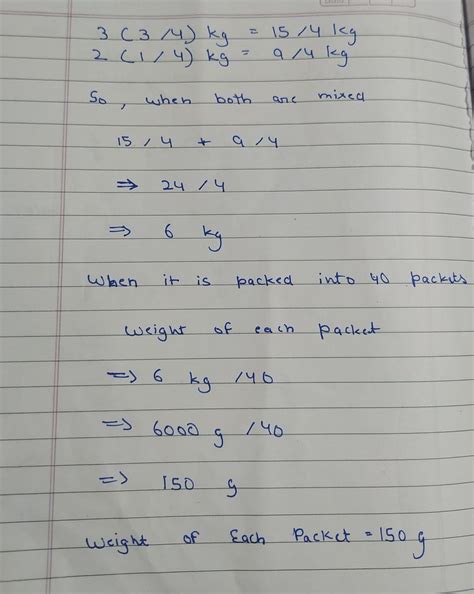 3 (3/4) kg = 15/4 kg
2 (1/4) kg = 9/4 kg
So, when both are mixed
15/4 + 9/4
⇒ 24/4
⇒ 6 kg
When it is packed into 40 packets
weight of each packet
⇒ 6 kg /40
⇒ 6000 g /40
⇒ 150 g
weight of Each Packet = 150 g